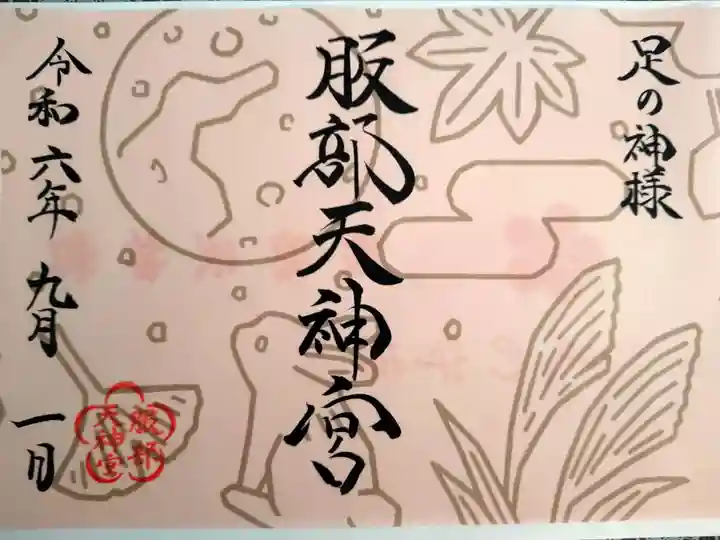 足の神様
服部天神宮
令和六年 九月 一日
服部
天神宮